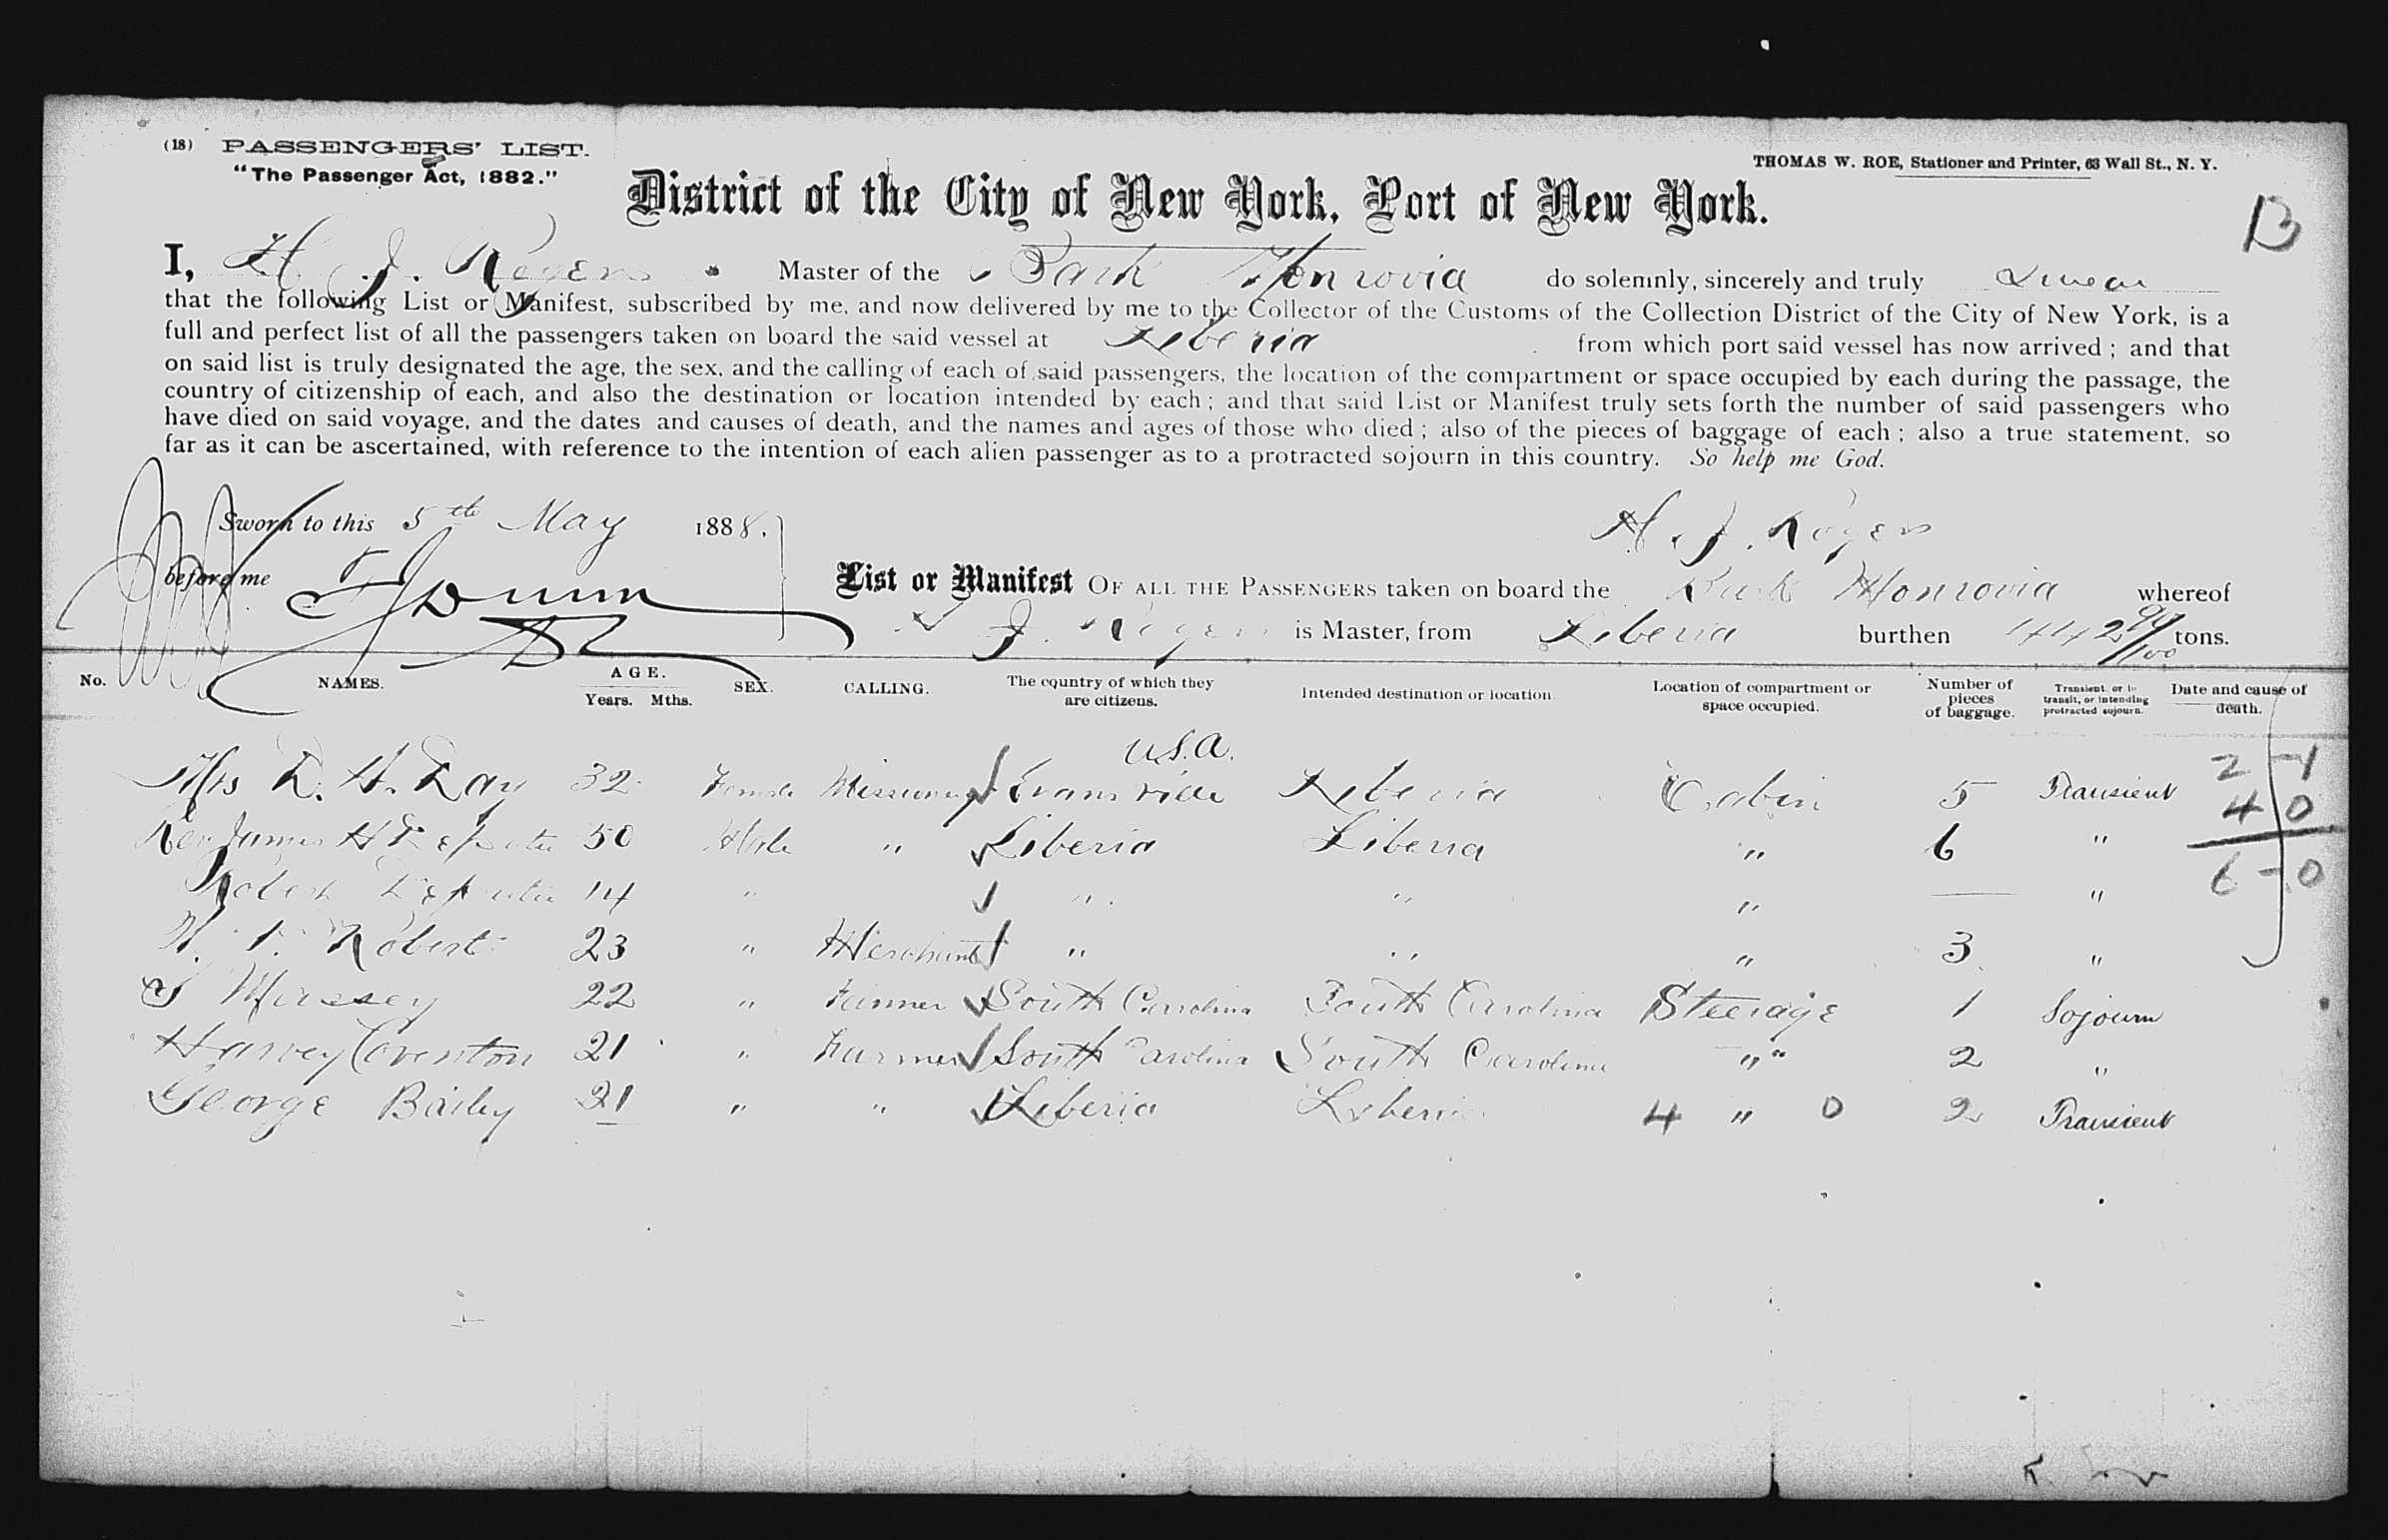 (18) PASSENGERS' LIST.
"The Passenger Act, 1882."
THOMAS W. ROE, Stationer and Printer, 63 Wall St., N. Y.
District of the City of New York, Port of New York.
B
I, H. J. Rogers Master of the Bark Monrovia do solemnly, sincerely and truly Swear
that the following List or Manifest, subscribed by me, and now delivered by me to the Collector of the Customs of the Collection District of the City of New York, is a
full and perfect list of all the passengers taken on board the said vessel at Liberia from which port said vessel has now arrived; and that
on said list is truly designated the age, the sex, and the calling of each of said passengers, the location of the compartment or space occupied by each during the passage, the
country of citizenship of each, and also the destination or location intended by each; and that said List or Manifest truly sets forth the number of said passengers who
have died on said voyage, and the dates and causes of death, and the names and ages of those who died; also of the pieces of baggage of each; also a true statement, so
far as it can be ascertained, with reference to the intention of each alien passenger as to a protracted sojourn in this country. So help me God.
Sworn to this 5th May 1888.
H. J. Rogers
before me
List or Manifest OF ALL THE PASSENGERS taken on board the Bark Monrovia whereof
H J. Rogers is Master, from Liberia burthen 442 99/100 tons.
No. NAMES. AGE. Years. Mths. SEX. CALLING. The country of which they are citizens. Intended destination or location. Location of compartment or space occupied. Number of pieces of baggage. Transient, or in transit, or intending protracted sojourn. Date and cause of death.
U.S.A.
Mrs D. H. Day 32 Female Missionary Evansville Liberia Cabin 5 Transient 2 - 1
Rev James H Deputie 50 Male " Liberia Liberia " 6 " 4 0
Robert Deputie 14 " " " " — " 6 - 0
Robert 23 " Merchant " " " 3 "
Massey 22 " Farmer South Carolina South Carolina Steerage 1 Sojourn
Harvey Coventon 21 " Farmer South Carolina South Carolina " 2 "
George Baily 21 " " Liberia Liberia 4 " 0 2 Transient